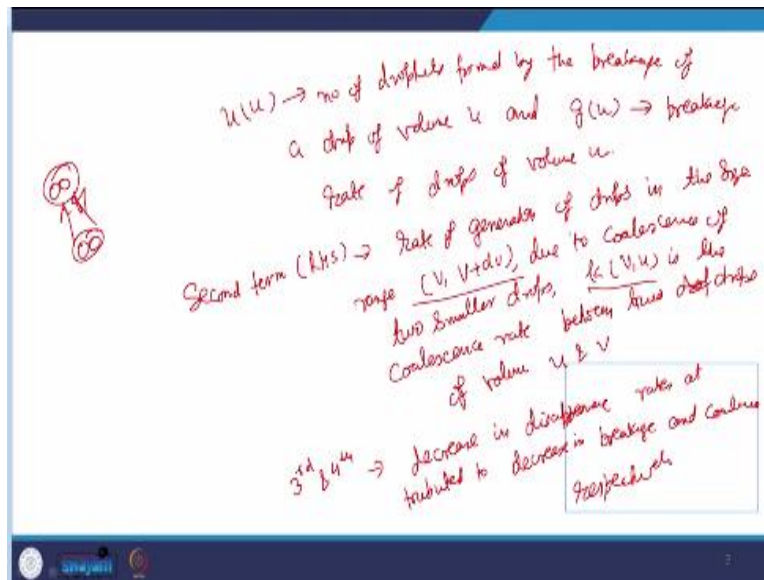 u(u) → no of droplets formed by the breakage of
a drop of volume u and g(u) → breakage
rate of drops of volume u.
Second term (RHS) → rate of generation of drops in the size
range (V, V+dV), due to Coalescence of
two smaller drops, k(V,u) is the
Coalescence rate between two drops
of volume u & v
3rd & 4th → decrease in disappearance rates at
tributed to decrease in breakage and
respectively
swayam
2